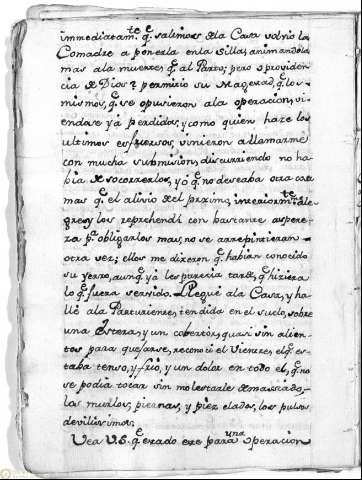 immediatam.te q.e salimos de la Casa volvio la
Comadre a ponerla en la Silla, animandola
mas a la muerte, q.e al Parto; pero o providen
cia de Dios! permitio su Magestad, q.e los
mismos, q.e se opusieron a la operacion, vi
endose ya perdidos, y como quien haze los
ultimos esfuerzos, vinieron a llamarme
con mucha submision, discurriendo no ha
bia de socorrerlos, y ó q.e no deseaba otra cosa
mas q.e el alivio del proximo, interiorm.te ale
greje y los reprehendi con bastante aspere
za p.a obligarlos mas, no se arrepintieran
otra vez; ellos me dixeron q.e habian conocido
su yerro, aunq.e ya les parecia tarde, q.e hiziera
lo q.e fuera servido. Llegué a la Casa, y ha
llé a la Parturiente, tendida en el suelo, sobre
una Estera, y un cobertór, quasi sin alien
tos para quejarse, reconocí el Vientre, el q.e es
taba tenso, y frio, y un dolor en todo el, q.e no
se podia tocar sin molestarle demasiado,
las muslos, piernas, y piez elados, los pulsos
devilissimos.
Vea V.S. q.e estado este para una operacion